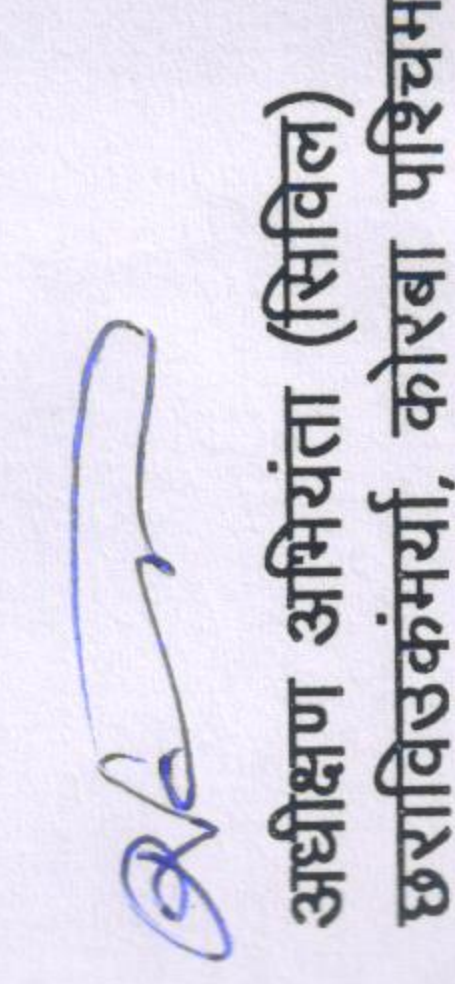 अधीक्षण अभियंता (सिविल)
छराविउकंमर्या, कोरबा पश्चिम